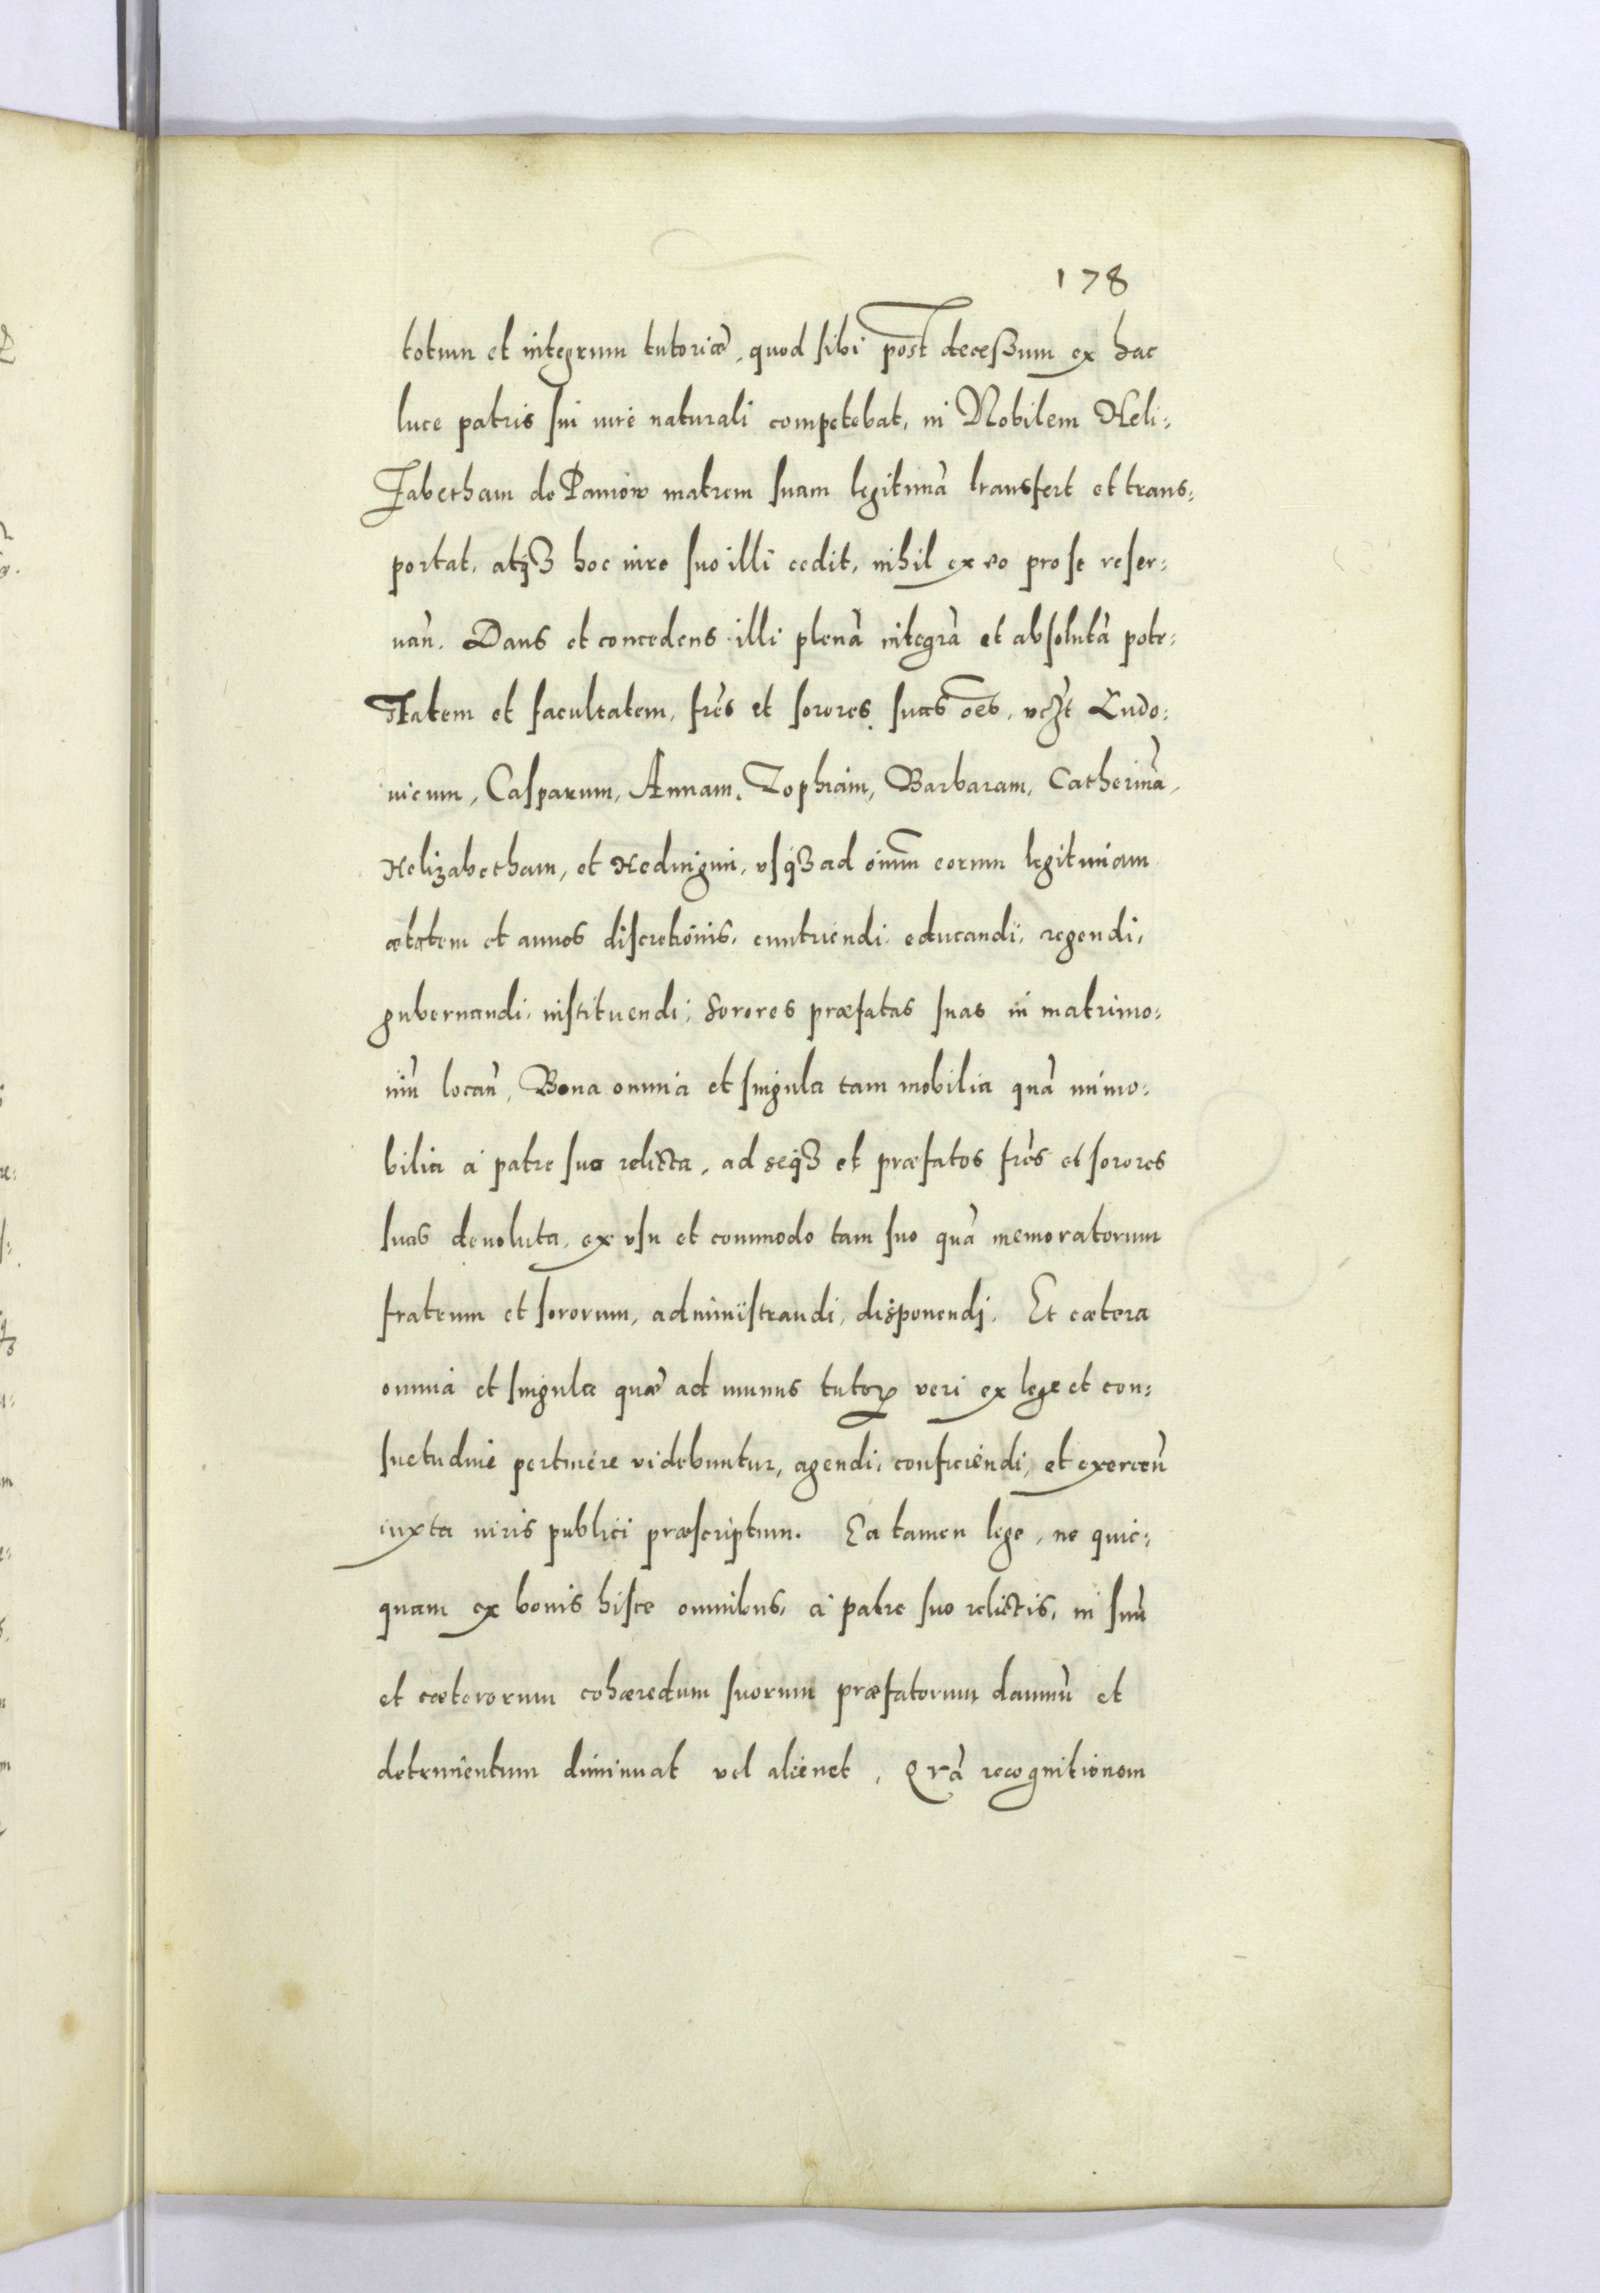 178
totum et integrum tutoriæ, quod sibi post decessum ex hac
luce patris sui iure naturali competebat, in Nobilem Heli:
zabetham de Paniow matrem suam legitimā transfert et trans:
portat, atqȝ hoc iure suo illi cedit, nihil ex eo pro se reser:
uan̄. Dans et concedens illi plenā integrā et absolutā pote:
statem et facultatem, fres̄ et sorores suas oēs, vcȝt Ludo:
uicum, Casparum, Annam, Zophiam, Barbaram, Catherinā,
Helizabetham, et Heduigim, vsqȝ ad oīum eorum legitimam
ætatem et annos discretionis, enutriendi, educandi, regendi,
gubernandi, instituendi, Sorores præfatas suas in matrimo:
niū locan̄, Bona omnia et singula tam mobilia quā immo:
bilia à patre suo relicta, ad seqȝ et præfatos frēs et sorores
suas deuoluta, ex vsu et commodo tam suo quā memoratorum
fratrum et sororum, administrandi, disponendi. Et cætera
omnia et singula quæ ad munus tutorꝭ veri ex lege et con:
suetudine pertinere videbuntur, agendi, conficiendi, et exercen̄
iuxta iuris publici præscriptum. Ea tamen lege, ne quic:
quam ex bonis hisce omnibus, à patre suo relictis, in suū
et cæterorum cohæredum suorum præfatorum damnū et
detrimentum diminuat vel alienet, recognitionem